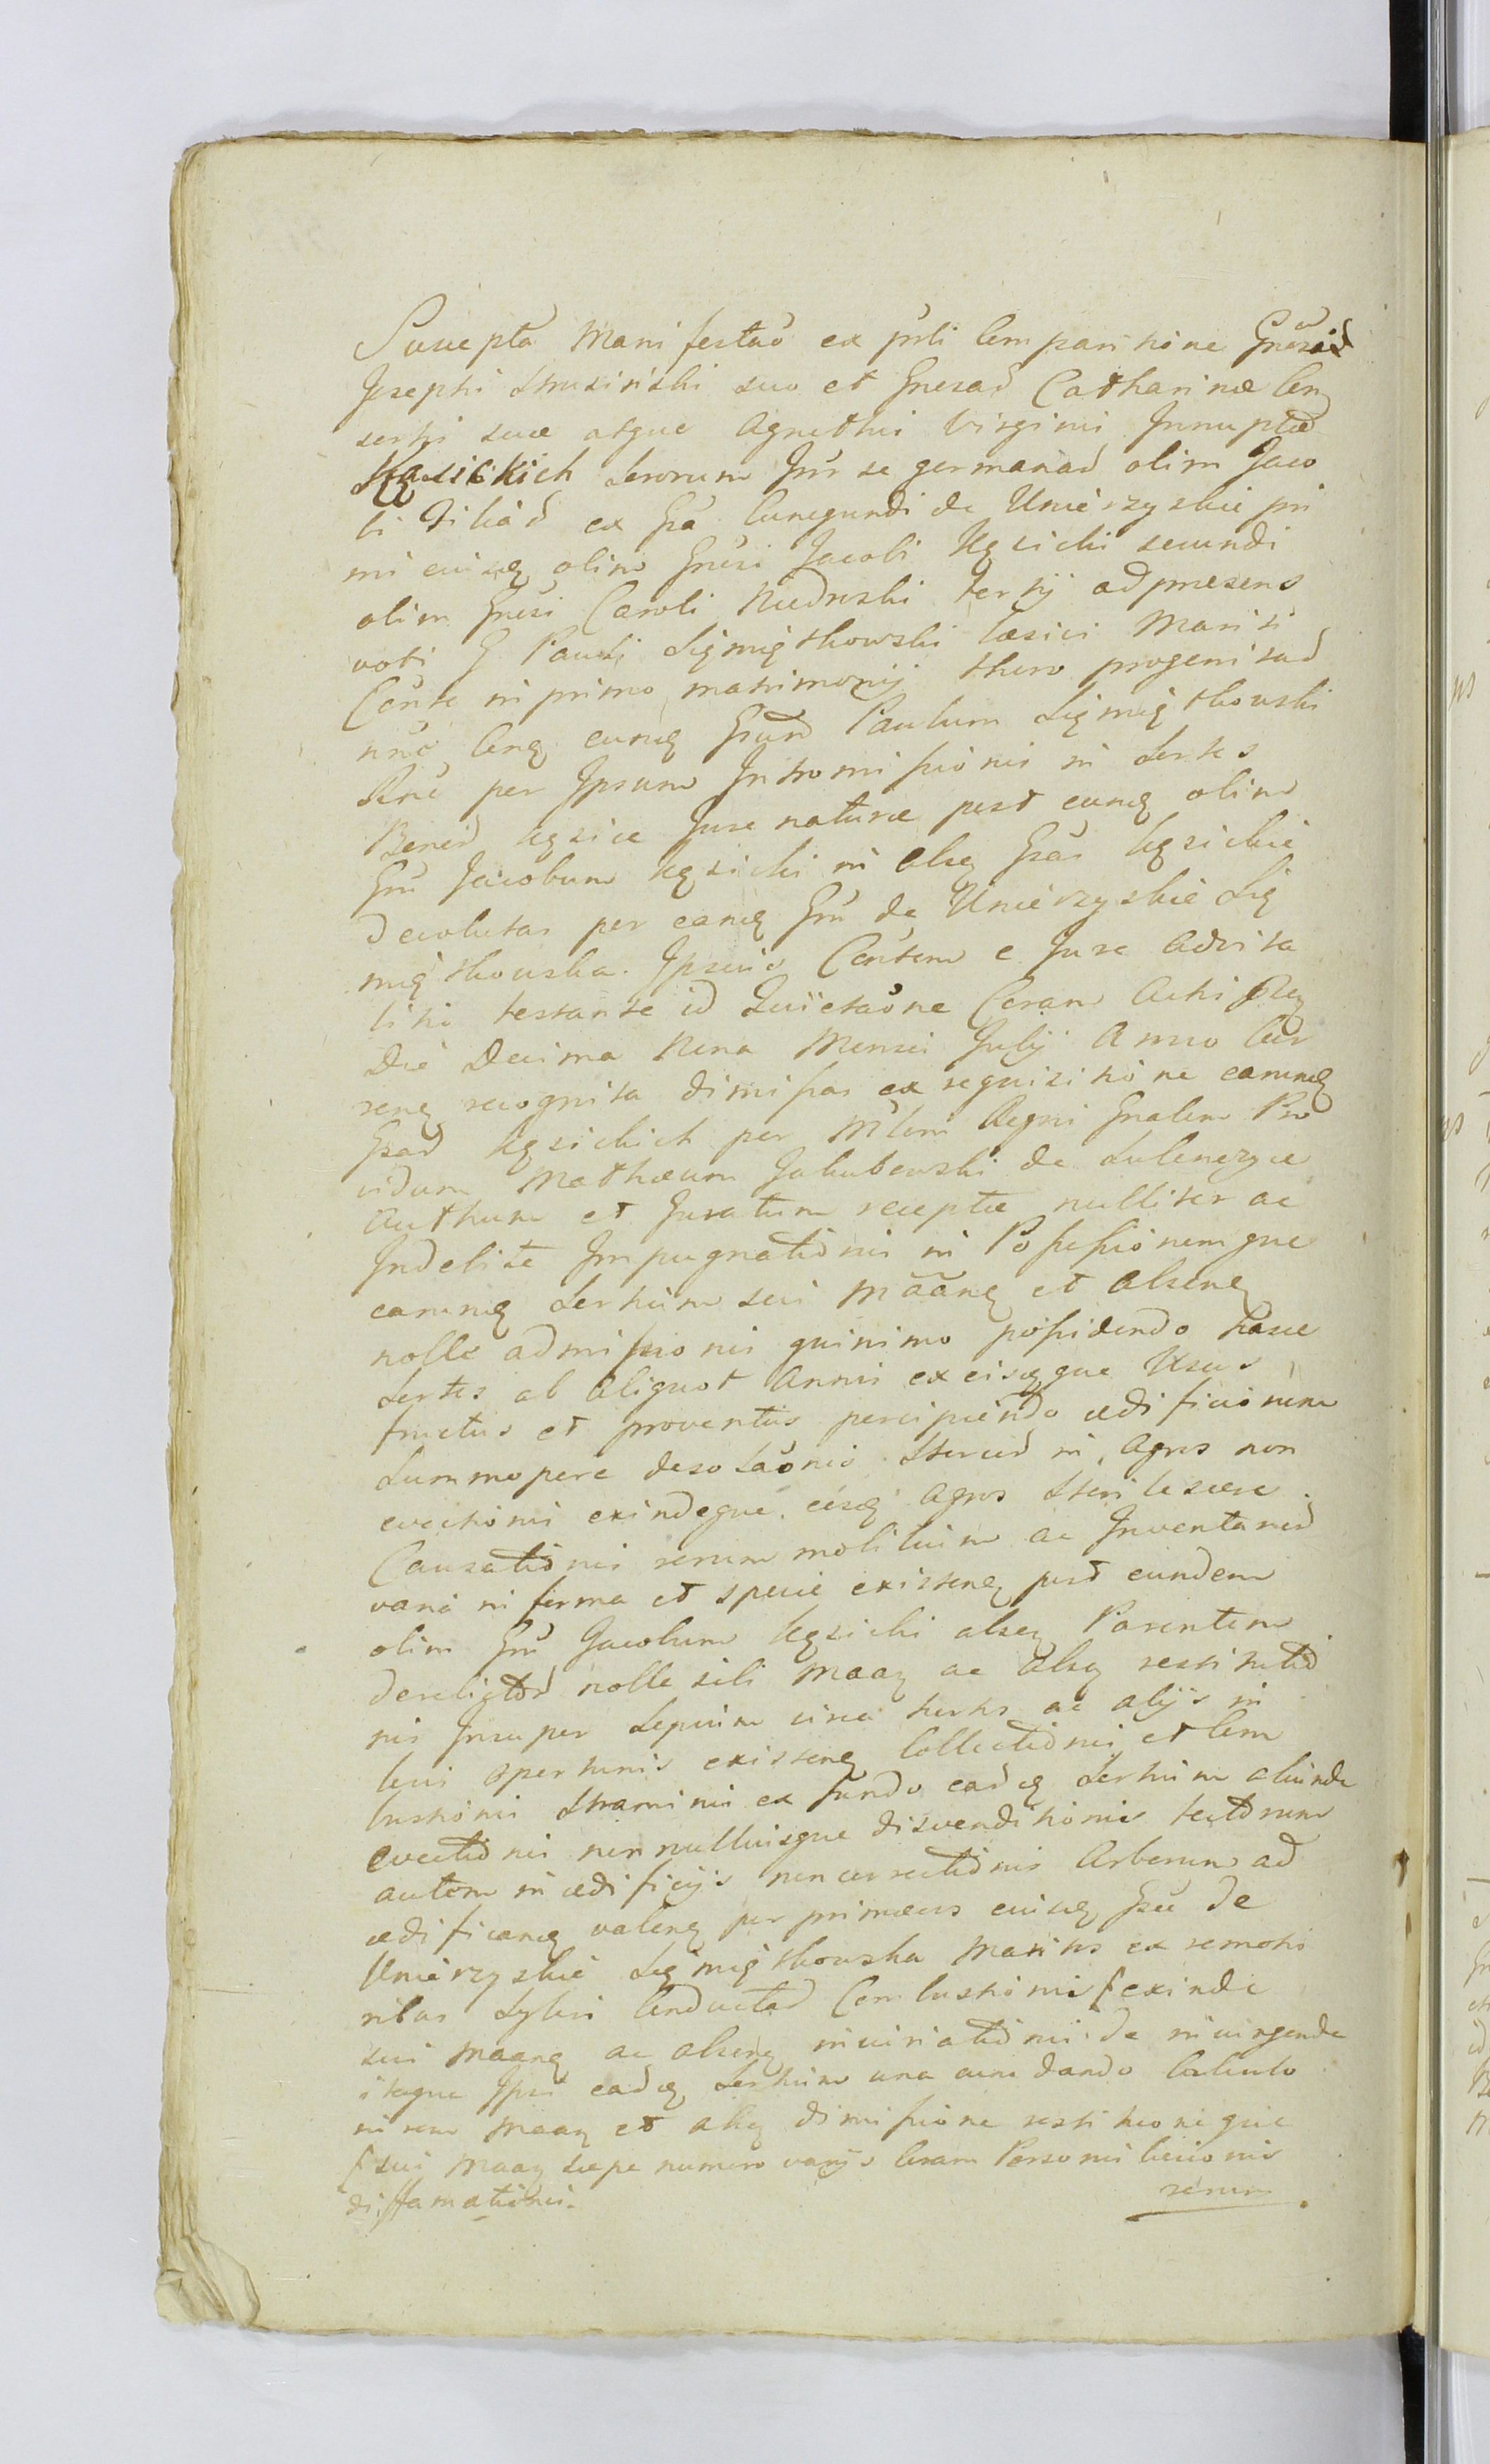 Suscepta Manifestaō ex prli Comparitione Gnosad
Josephi Strusinski suo et Gnesad Catharinæ Con
sortis suæ atque Agnethis Virginis Innuptæ
Kęsickich Sororum Intr se germanad olim Jaco
bi Filiad ex Gsa Cunegundi de Unierzyskie pri
mi eiusq olim Gnosi Jacobi Kęsicki secundi
olim Gnosi Caroli tertij ad præsens
voti G Pauli Ligmigtkowski Mariti
in primo matrimonij thoro progenitad
nūc eunq Paulum Ligmigtkowski
per Ipsum Intromissionis in Sortes
Bonod Kęsice Jure naturæ post eunq olim
Gnu Jacobum Kęsicki in alsq Gsas Kęsickie
devolutas per eanq Gsu de Unierzyskie Lig
migtkowska Ipsius e Jure advita
litio testante id Quietaōne Coram Actis
Die Decima Nona Mensis Julij Anno Cur
renq recognita dimissas ex requisitione earunq
Gsad Kęsickich per Mlem Regni Gnalem Pro
vidum Mathæum Jakubowski de
Authum et Juratum receptæ nulliter ac
Indebite Impugnationis in Possessionemque
earunq Sortium sui Māānq et alsenq
nolle admissionis quinimo possidendo hasce
Sortes ab aliquot Annis ex eisqque Usus
fructus et proventus percipiendo ædificiorum
Summopere desolaōnis Stercud in Agros non
evectionis exindeque eosq agros Sterilescere
Causationis rerum mobilium ac Inventariod
varia in forma et specie existenq post eundem
olim Gnu Jacobum Kęsicki alseq Parentem
derelictod nolle sibi Maaq ac alsq restitutio
nis Insuper Sepium circa hortos ac alijs in
locis opertunis existenq Collectionis et Com
bustionis Straminis ex fundo eadq Sortium aliunde
evectionis non nullius que disvenditionis tectorum
autem in ædificijs non correctionis Arborum ad
ædificanq valenq per primævos eiusq Gsu de
Unierzyskie Ligmigtkowska Maritos ex remotio
ribus Sylvis Conductad Combustionis exinde
sui Maanq ac alsenq iniuriationis de iniungende
itaque Ipsi eadq Sortium una cum dando Calculo
Maaq et alsq dimissione restitutioneque
sui Maaq sæpe numero varijs Coram Personis
diffamationis.
rerum